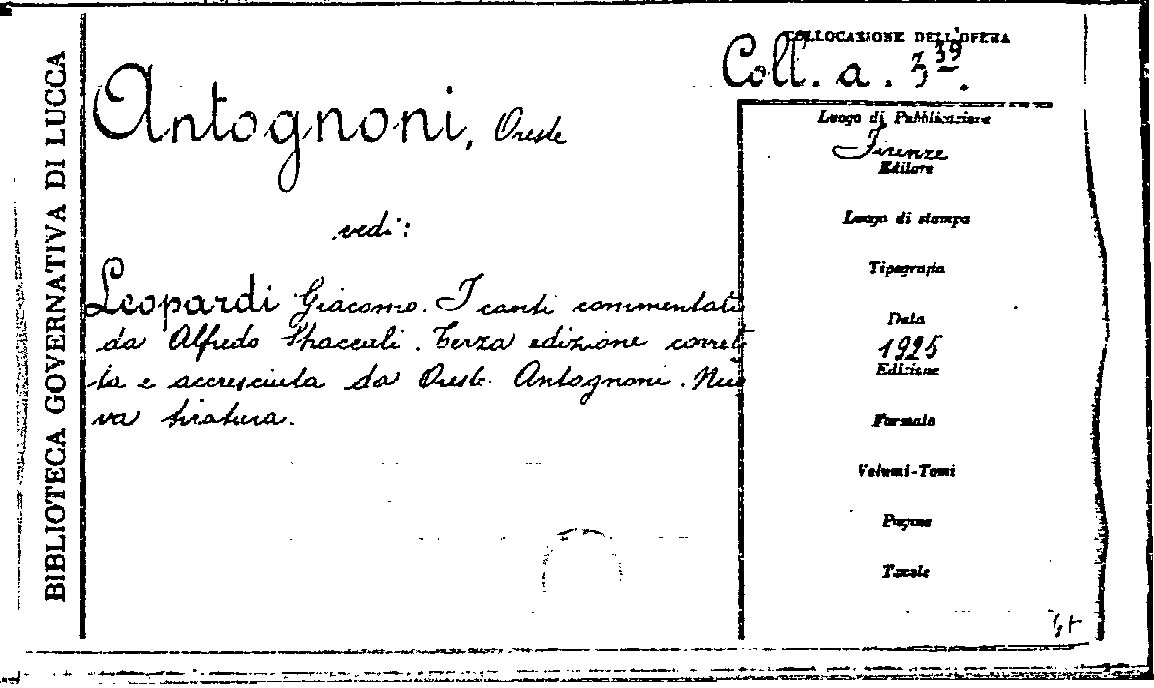 BIBLIOTECA GOVERNATIVA DI LUCCA
Antognoni, Oreste
vedi:
Leopardi Giacomo. I canti commentati
da Alfredo Straccali. Terza edizione corret
ta e accresciuta da Oreste Antognoni. Nuo
va tiratura.
COLLOCAZIONE DELL'OPERA
Coll. a. 3 39.
Luogo di Pubblicazione
Firenze
Editore
Luogo di stampa
Tipografia
Data
1925
Edizione
Formato
Volumi-Tomi
Pagine
Tavole